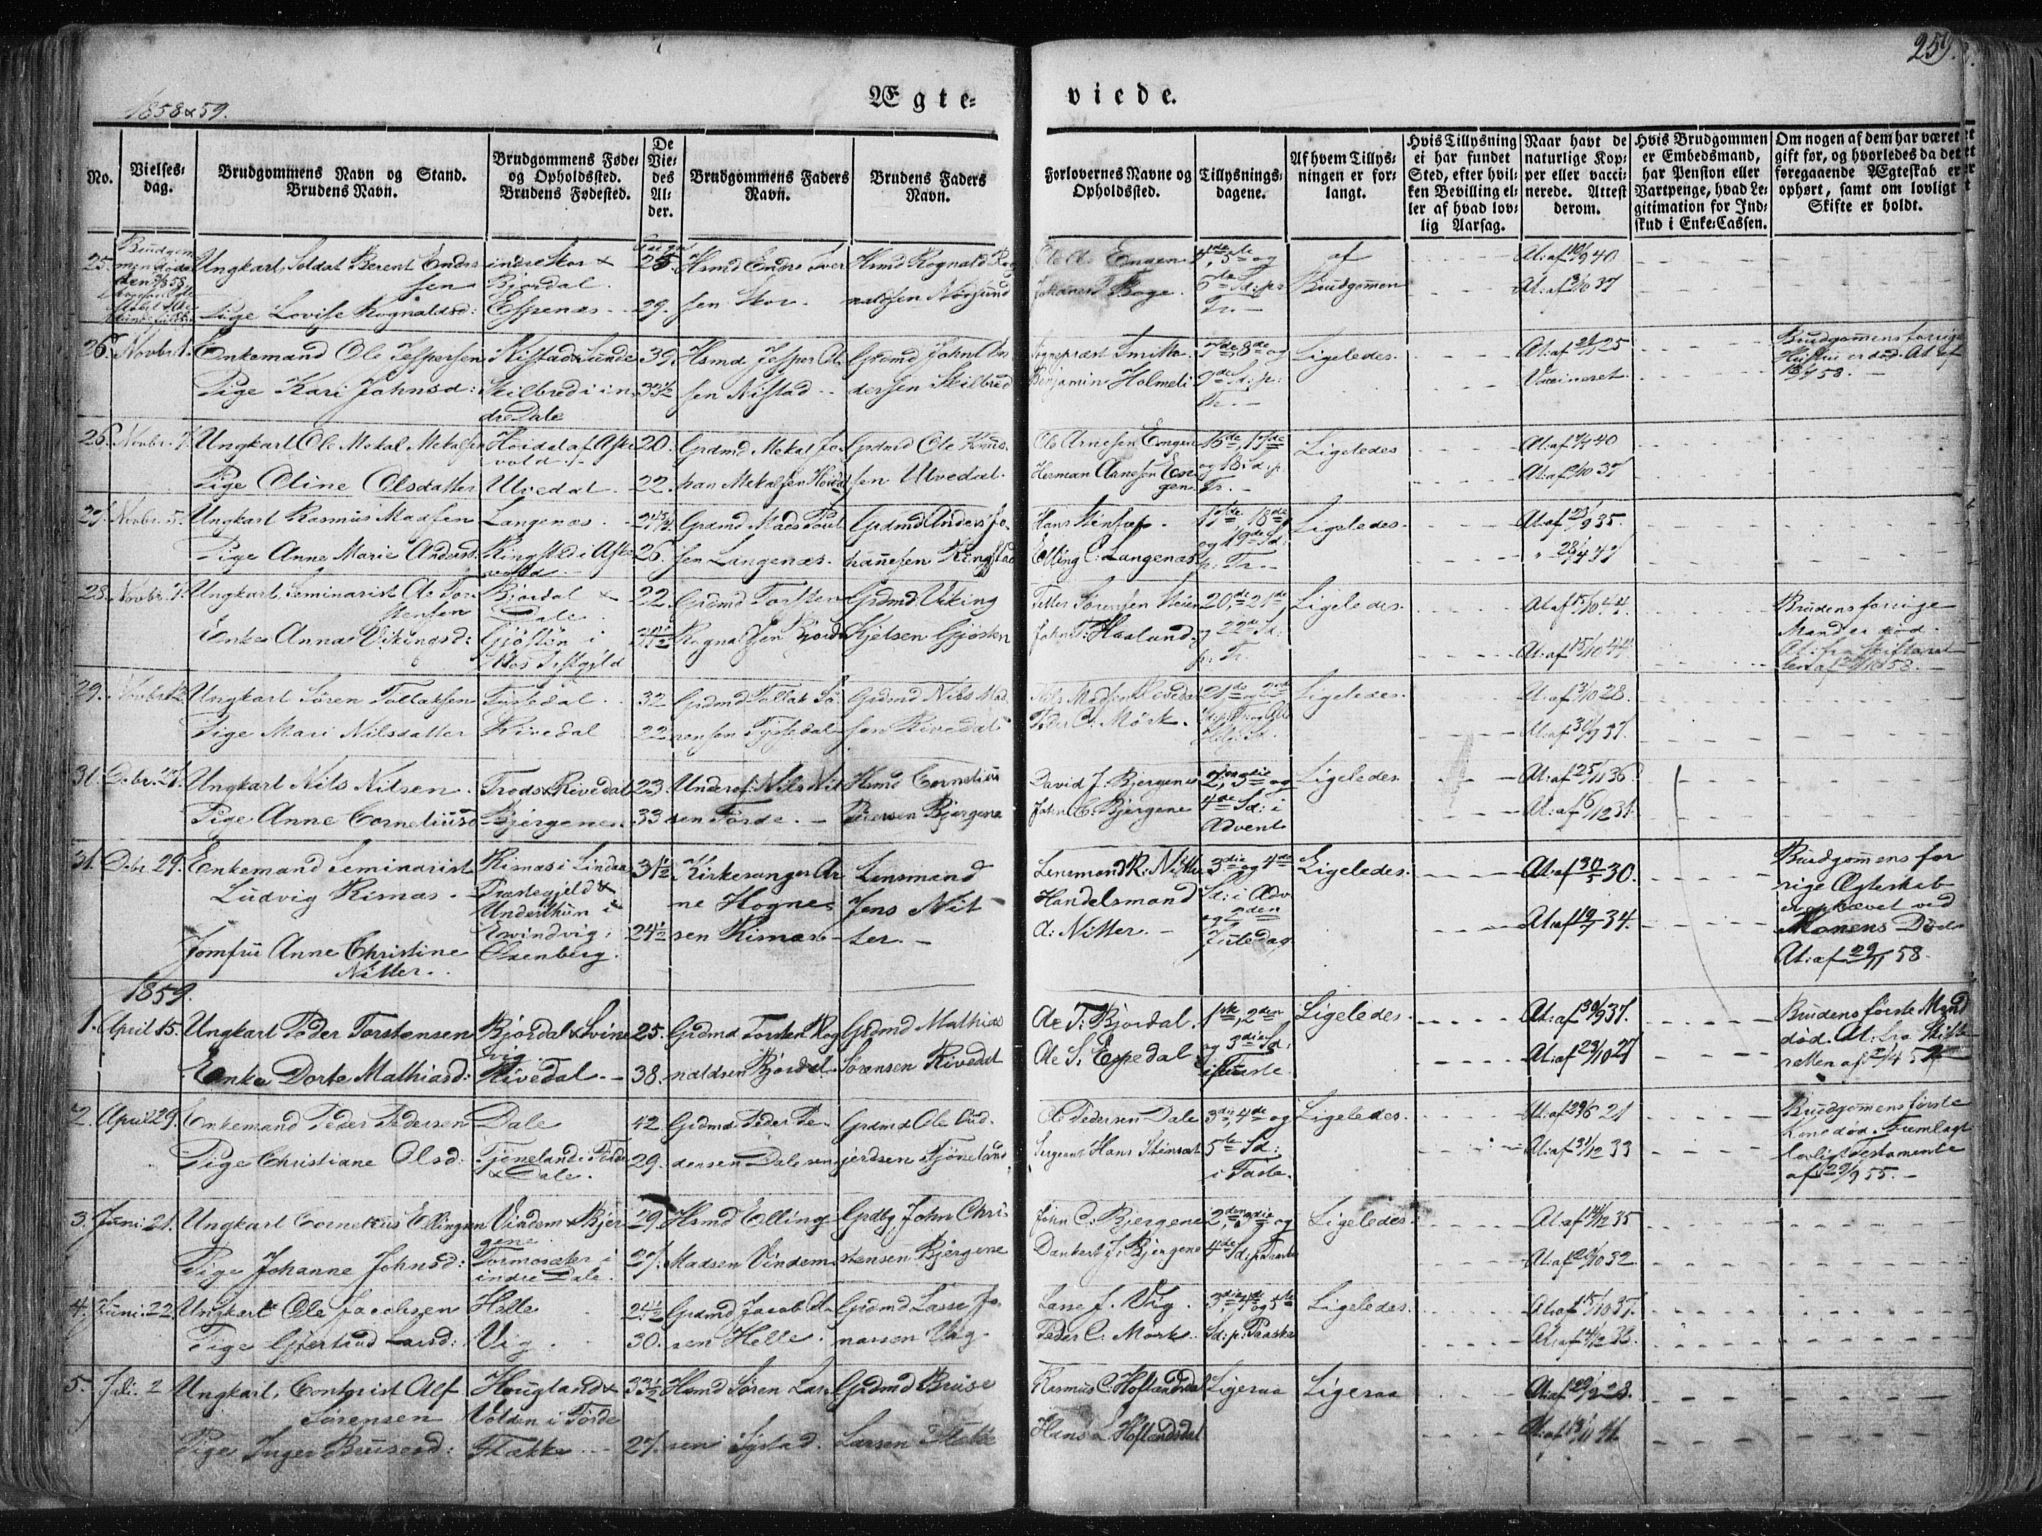 1858 & 59.
Ægte-
viede.
259.
No.
Vielses-
dag.
Brudgommens Navn og Stand.
Brudens Navn.
Brudgommens Føde-
og Opholdssted.
Brudens Fødested.
De
Vie-
des
Al-
der.
Brudgommens Faders
Navn.
Brudens Faders
Navn.
Forlovernes Navne og
Opholdssted.
Tillysnings-
dagene.
Af hvem Tillys-
ningen er for-
langt.
Hvis Tillysning
ei har fundet
Sted, efter hvil-
ken Bevilling el-
ler af hvad lov-
lig Aarsag.
Naar havt de
naturlige Kop-
per eller vacci-
nerede. Attest
derom.
Hvis Brudgommen
er Embedsmand,
har Pension eller
Vartpenge, hvad Le-
gitimation for Ind-
skud i Enke-Cassen.
Om nogen af dem har været
gift før, og hvorledes da det
foregaaende Ægteskab er
ophørt, samt om lovligt
Skifte er holdt.
25.
Ungkarl, Soldat Berent Endre
sen
Pige Lovise Rognaldsd:
indre Skor &
Bjordal
Espenæs
29.
Hsmd Endre Iver
sen Skor.
Hsmd Rognald Rog
naldsen
af
Brudgommen
At: af 40
At: af 37
26. Novbr. 1.
Enkemand Ole Jespersen
Pige Kari Johnsd:
Nistad & Sunde
Skilbred i in
dre Dale
39.
33½
Hsmd Jesper Ol
sen Nistad
Grdmd John An
dersen Skilbred
Sognepræst Smitt
Benjamin Holmeli
7de, 8de og
9de Sd: p:
Tr.
Ligeledes.
At: af 25
Vaccineret.
Brudgommens forrige
Hustru er død. At. af
58.
26. Novbr. 7.
Ungkarl Ole Mekal Mekalsen
Pige Oline Olsdatter
Hovdal af Aske
vold
Utvedal
20.
22.
Grdmd Mekal Jo
han Mekalsen Hovdal
Grdmd Ole Knud
sen Utvedal.
Ole Arnesen Engen
Herman Arnesen En
gen
16de, 17de
og 18. Sd. p.
Tr.
Ligeledes
At: af 40
At: af 37
27. Novbr. 5.
Ungkarl Rasmus Madsen
Pige Anne Marie Andersd.
Langenæs
Ringstad i Aske
vold
26.
Grdmd Mads Poul
sen Langenæs.
Grdmd Anders Jo
hannesen Ringstad
Hans Stensæt
Elling C: Langenæs
17de, 18de
og 19de Sd:
p: Tr.
Ligeledes
At: af 35.
28. Novbr. 7.
Ungkarl, Seminarist Ole Tor
stensen
Enke Anna Vikingsd:
Bjordal &
Dale.
Gjøsten i
22.
Grdmd Torsten
Rognaldsen Bjordal
Grdmd Viking
Kjelsen Gjøsten
John T: Hasland
20de, 21de
og 22de Sd:
p: Tr.
Ligeledes.
At: af 44.
At: af 15/10 44
Brudens forrige
Mand er død.
At: fra Skifteret
ten af 58.
29.
Ungkarl Søren Tollaksen
Pige Mari Nilsdatter
Tyssedal
Rivedal
32
22
Grdmd Tollak Sø
rensen Tyssedal
Grdmd Nils Mad
sen Rivedal
Peder C. Mørk.
Ligeledes.
At: af 3/10 28.
At: af 37.
31. Debr. 27.
Ungkarl Nils Nilsen
Pige Anne Corneliusd
Trods & Rivedal
Bjergene
23.
33
Underof: Nils Nil
sen Førde.
Hsmd Cornelius
Bjergene
David J. Bjergene
John C. Bjergene
2den, 3die og
4de Sd: i
Advent
Ligeledes.
At: af 25/11 36
At: af 6/12 31.
31. Debr. 29.
Enkemand Seminarist
Ludvig Risnæs
Jomfru Anne Christine
Nitter.
Risnæs i Lindaas
Præstegjeld &
Underthun i
Evindvig;
Oxenberg.
34½
24½
Kirkesanger Ar
ne Hogne
sen Risnæs
Lensmand
Jens Nit
ter.
Lensmand R: Nitter
Handelsmand
A: Nitter.
3die og 4de
Sd: i Adv
og 2den
Juledag
Ligeledes.
At: af 30/5 30.
At: af 19/7 34.
Brudgommens for
rige Ægteskab
er ophævet ved
Konens Død
At: af 29/11 58.
1859.
1. April 15.
Ungkarl Peder Torstensen
Enke Dorte Mathiasd:
Bjordal & Svine
vig.
Rivedal
25.
38.
Grdmd Torsten Rog
naldsen Bjordal.
Grdmd Mathias
Sørensen Rivedal
Ole T: Bjordal.
Ole S. Espedal
1ste, 2den
og 3die Sd:
i Faste
Ligeledes.
At: af 37.
At: af 23/10 27
Brudens første Mand
død. At: fra Skifte
retten af
2. April 29.
Enkemand Peder Pedersen
Pige Christiane Olsd:
Dale
Fjøneland i Førde
& Dale.
42.
29.
Grdmd Peder Pe
dersen Dale
Grdmd Ole Gud
jerdsen Fjøneland
Ole Pedersen Dale
Sergeant Hans Stensæt
3die, 4de og
5te Sd:
i Faste.
Ligeledes.
At: af 21
At: af 31/12 33
Brudgommens første
Kone død. Fremlagt
lovligt Testamente
af 29/9 55.
3. Juni 21.
Ungkarl Cornelius Ellingsen
Pige Johanne Johnsd:
Vindem & Bjer
gene
Tormosæter i
indre Dale.
29.
27.
Hsmd Elling
Madsen Vindem
Grdbg John Chri
stensen Bjergene
John C. Bjergene
Danbert J. Bjergene
2den, 3die og
4de Sd: p. Paaske
Ligeledes
At: af 14/12 35
At: af 20/10 32
4. Juni 22.
Ungkarl Ole Jacobsen
Pige Gjertrud Larsd:
Helle
Vig
24½
30.
Grdmd Jacob Ol
sen Helle
Grdmd Lasse Jo
narsen Vig
Lasse J. Vig.
Peder C. Mørk.
3die, 4de og 5te
Sd: p: Paaske
Ligeledes.
At: af 15/10 37.
At: af 4/12 33.
5. Juli 2
Ungkarl, Contorist Alf
Sørensen
Pige Inger Brusesd:
Hougland &
Volden i Førde
Flakke
33½
27.
Hsmd Søren Lar
sen Systad.
Grdmd Bruse
Larsen Flakke
Rasmus C. Hoflandsdal
Hans L Hoflandsdal
Ligesaa
Ligesaa
At: af 28.